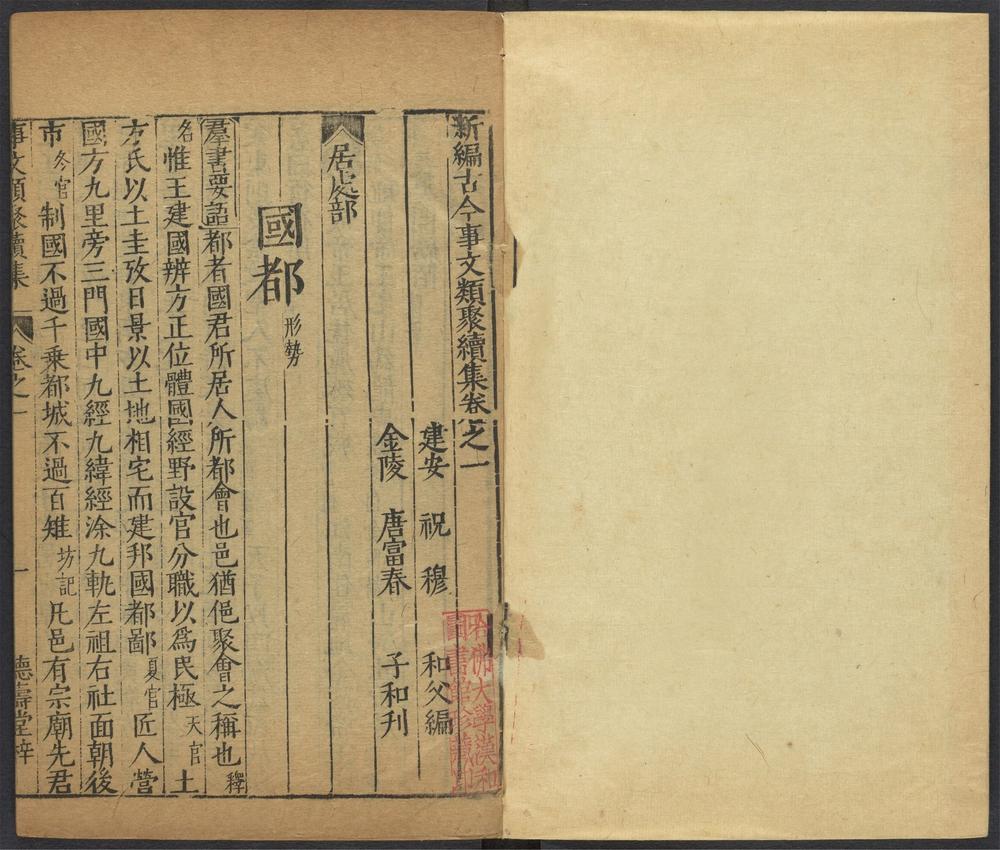 新編古今事文類聚續集卷之一
建安 祝 穆 和父編
金陵 唐富春 子和刋
居處部
國都 形勢
羣書要語都者國君所居人所都會也邑猶俋聚會之稱也釋
名惟王建國辨方正位體國經野設官分職以爲民極天官土
方氏以土圭攷日景以土地相宅而建邦國都鄙夏官匠人營
國方九里旁三門國中九經九緯經涂九軌左祖右社面朝後
市冬官制國不過千乗都城不過百雉坊記凡邑有宗廟先君
事文類聚續集 卷之一 一 德壽堂梓
哈佛大學漢和
圖書館珍藏印